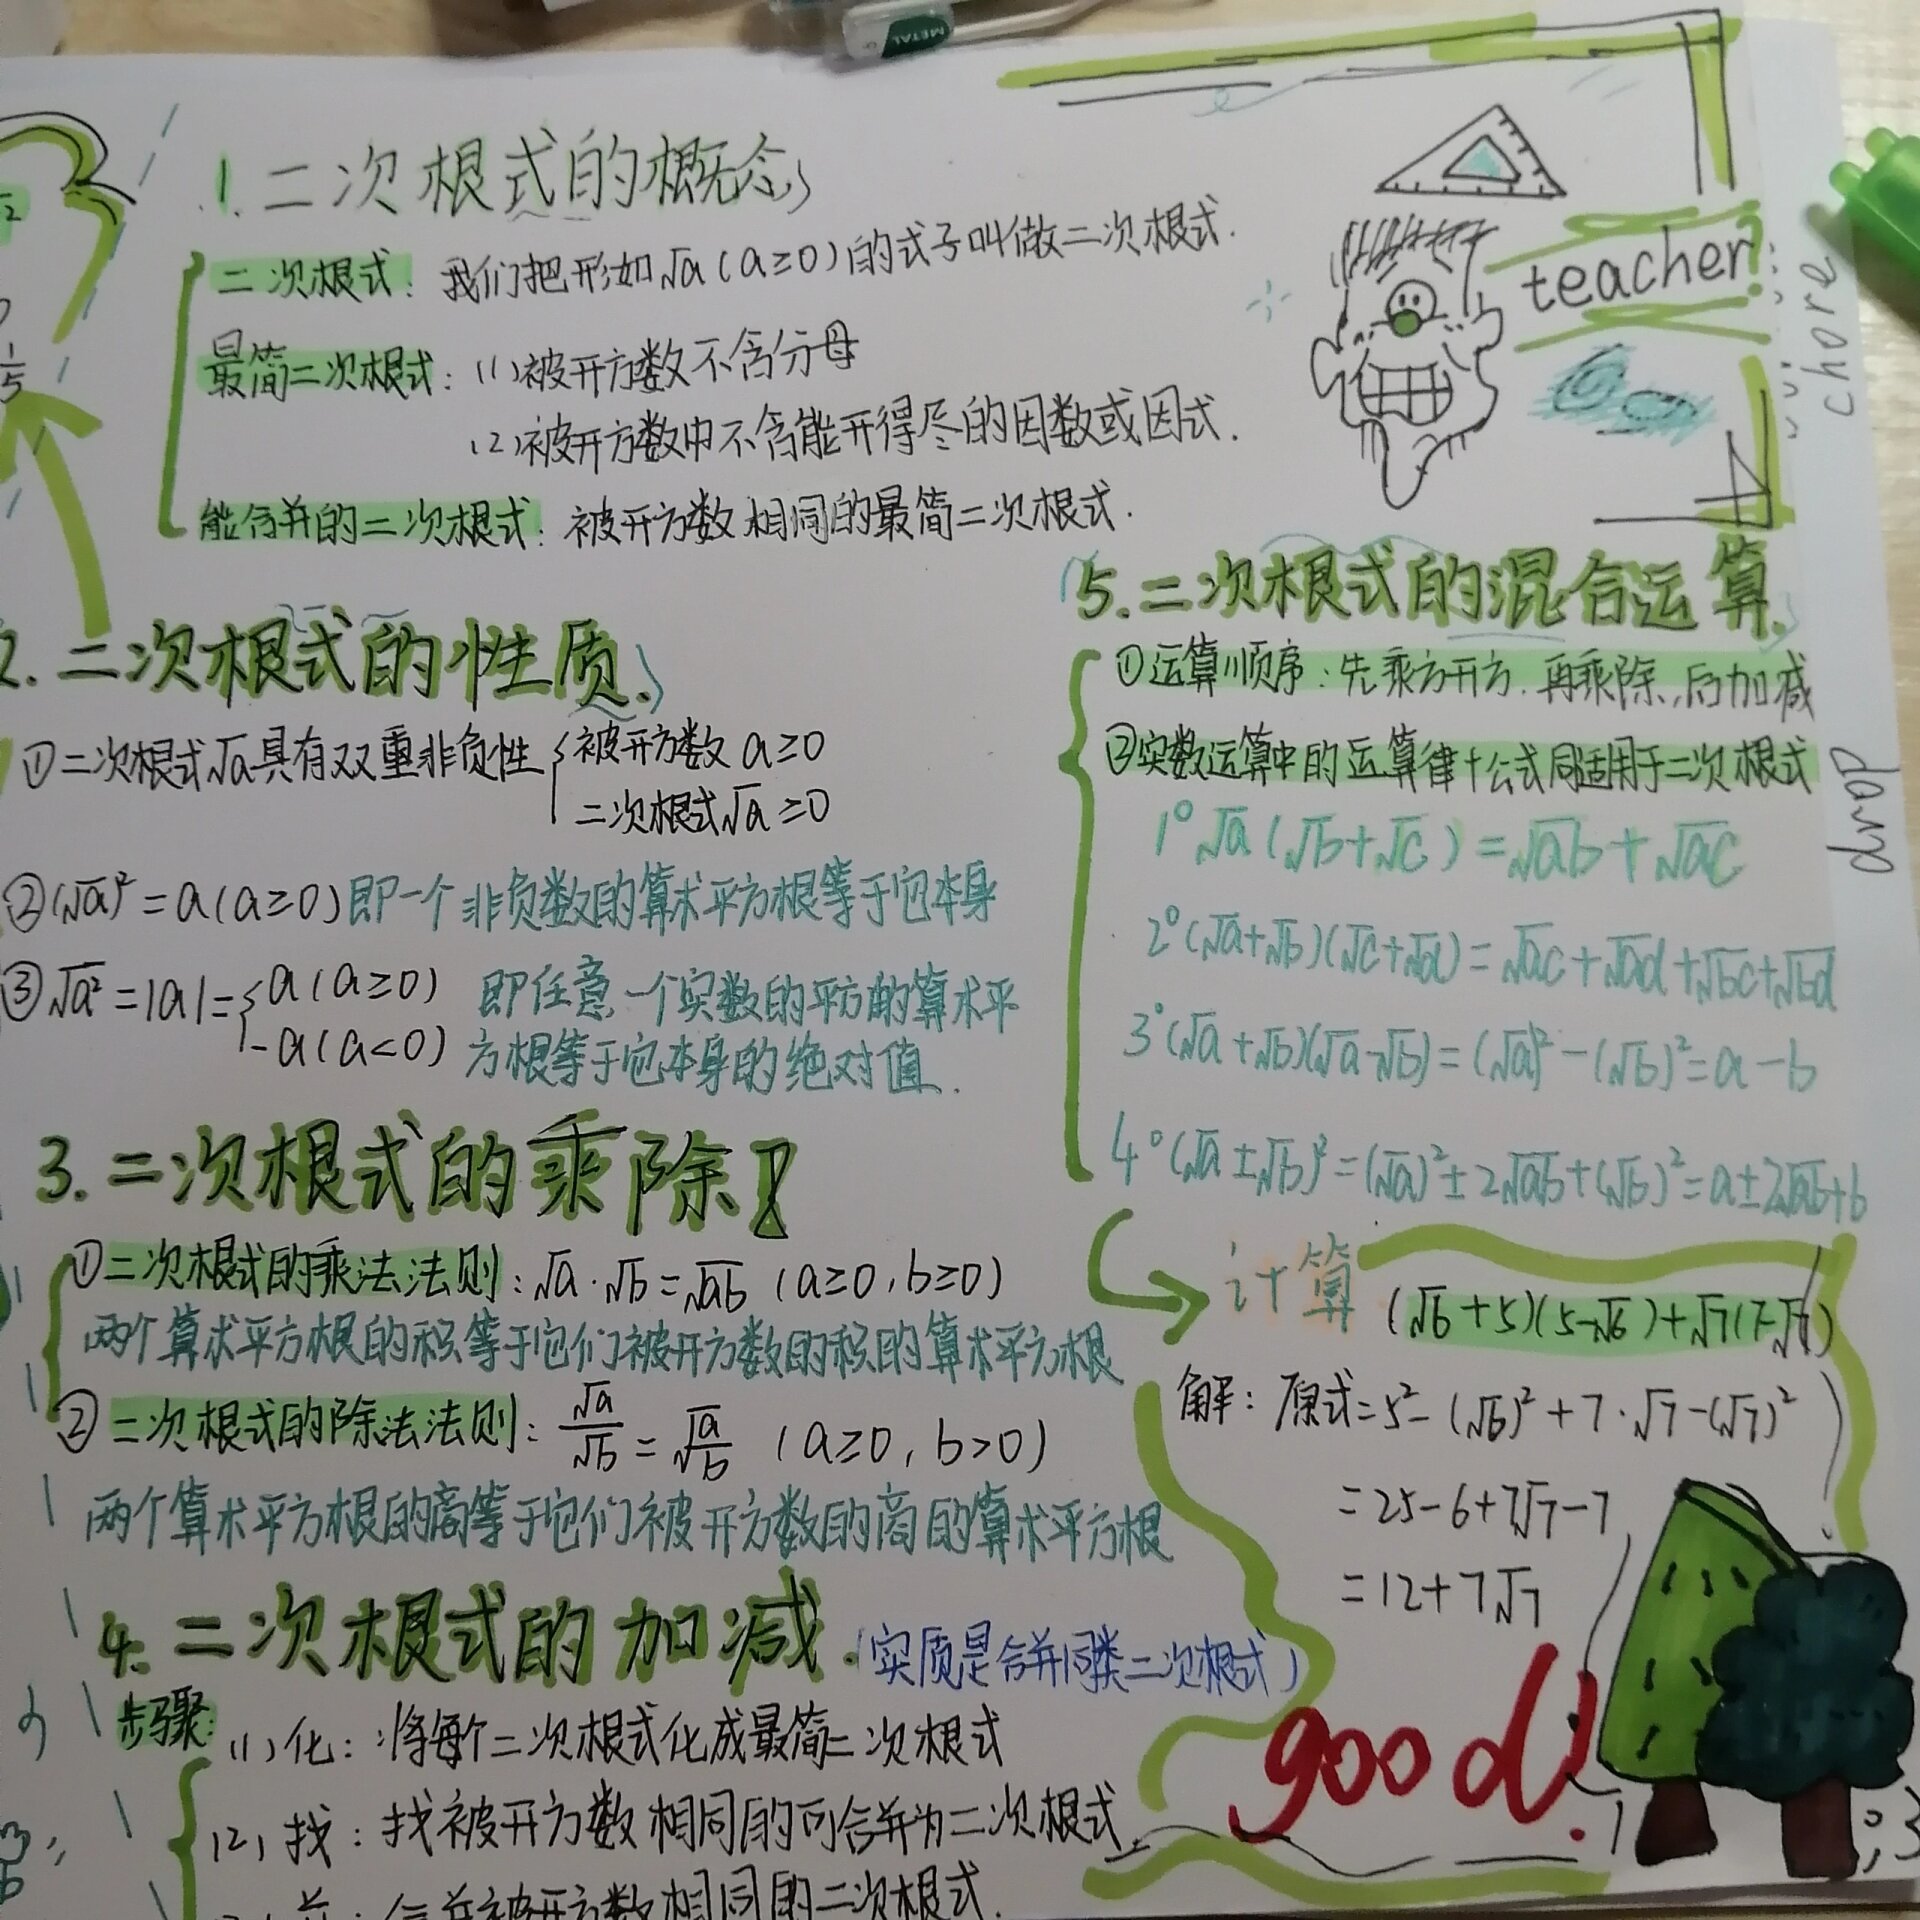 METAL
1.二次根式的概念
二次根式：我们把形如√a（a≥0）的式子叫做二次根式.
最简二次根式：(1)被开方数不含分母
(2)被开方数中不含能开得尽的因数或因式.
能合并的二次根式：被开方数相同的最简二次根式.
teacher
chore
drop
2.二次根式的性质.
①二次根式√a具有双重非负性{被开方数a≥0
二次根式√a≥0
②(√a)²=a(a≥0)即一个非负数的算术平方根等于它本身
③√a²=|a|={a(a≥0) 即任意一个实数的平方的算术平
-a(a<0) 方根等于它本身的绝对值.
3.二次根式的乘除!
①二次根式的乘法法则：√a·√b=√ab (a≥0,b≥0)
两个算术平方根的积等于它们被开方数的积的算术平方根
②二次根式的除法法则：√a/√b=√(a/b) (a≥0,b>0)
两个算术平方根的商等于它们被开方数的商的算术平方根
4.二次根式的加减.(实质是合并同类二次根式)
步骤:
(1)化：将每个二次根式化成最简二次根式
(2)找：找被开方数相同的可合并为二次根式
合并被开方数相同的二次根式.
5.二次根式的混合运算.
①运算顺序：先乘方开方.再乘除,后加减
②实数运算中的运算律+公式同适用于二次根式
1°√a(√b+√c)=√ab+√ac
2°(√a+√b)(√c+√d)=√ac+√ad+√bc+√bd
3°(√a+√b)(√a-√b)=(√a)²-(√b)²=a-b
4°(√a±√b)²=(√a)²±2√ab+(√b)²=a±2√ab+b
计算 (√6+5)(5-√6)+√7(7-√7)
解：原式=5²-(√6)²+7·√7-(√7)²
=25-6+7√7-7
=12+7√7
good!